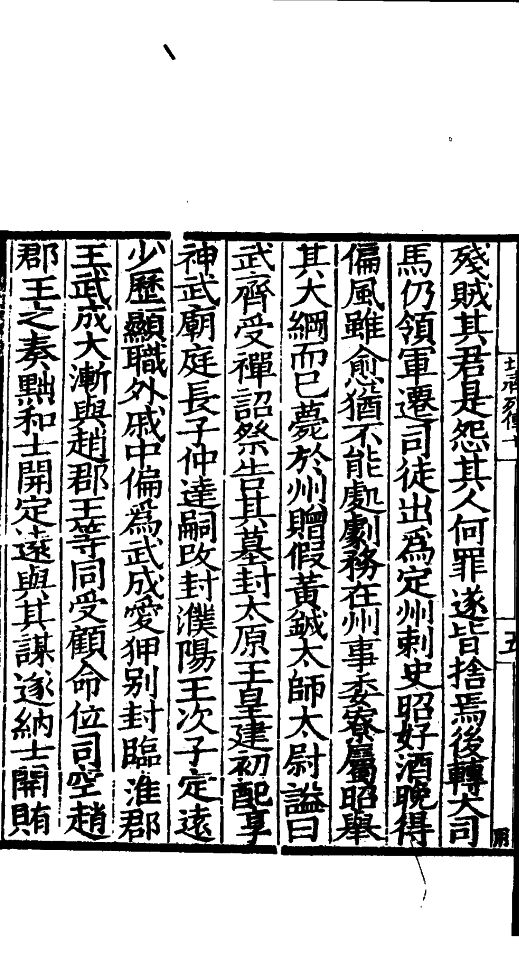 殘賊其君是怨其人何罪遂皆捨焉後轉大司
馬仍領軍遷司徒出爲定州刺史昭好酒晚得
偏風雖愈猶不能處劇務在州事委寮屬昭舉
其大綱而已薨於州贈假黃鉞太師太尉謚曰
武齊受禪詔祭告其墓封太原王皇建初配享
神武廟庭長子仲達嗣改封濮陽王次子定遠
少歷顯職外戚中偏爲武成愛狎別封臨淮郡
王武成大漸與趙郡王等同受顧命位司空趙
郡王之奏黜和士開定遠與其謀遂納士開賄